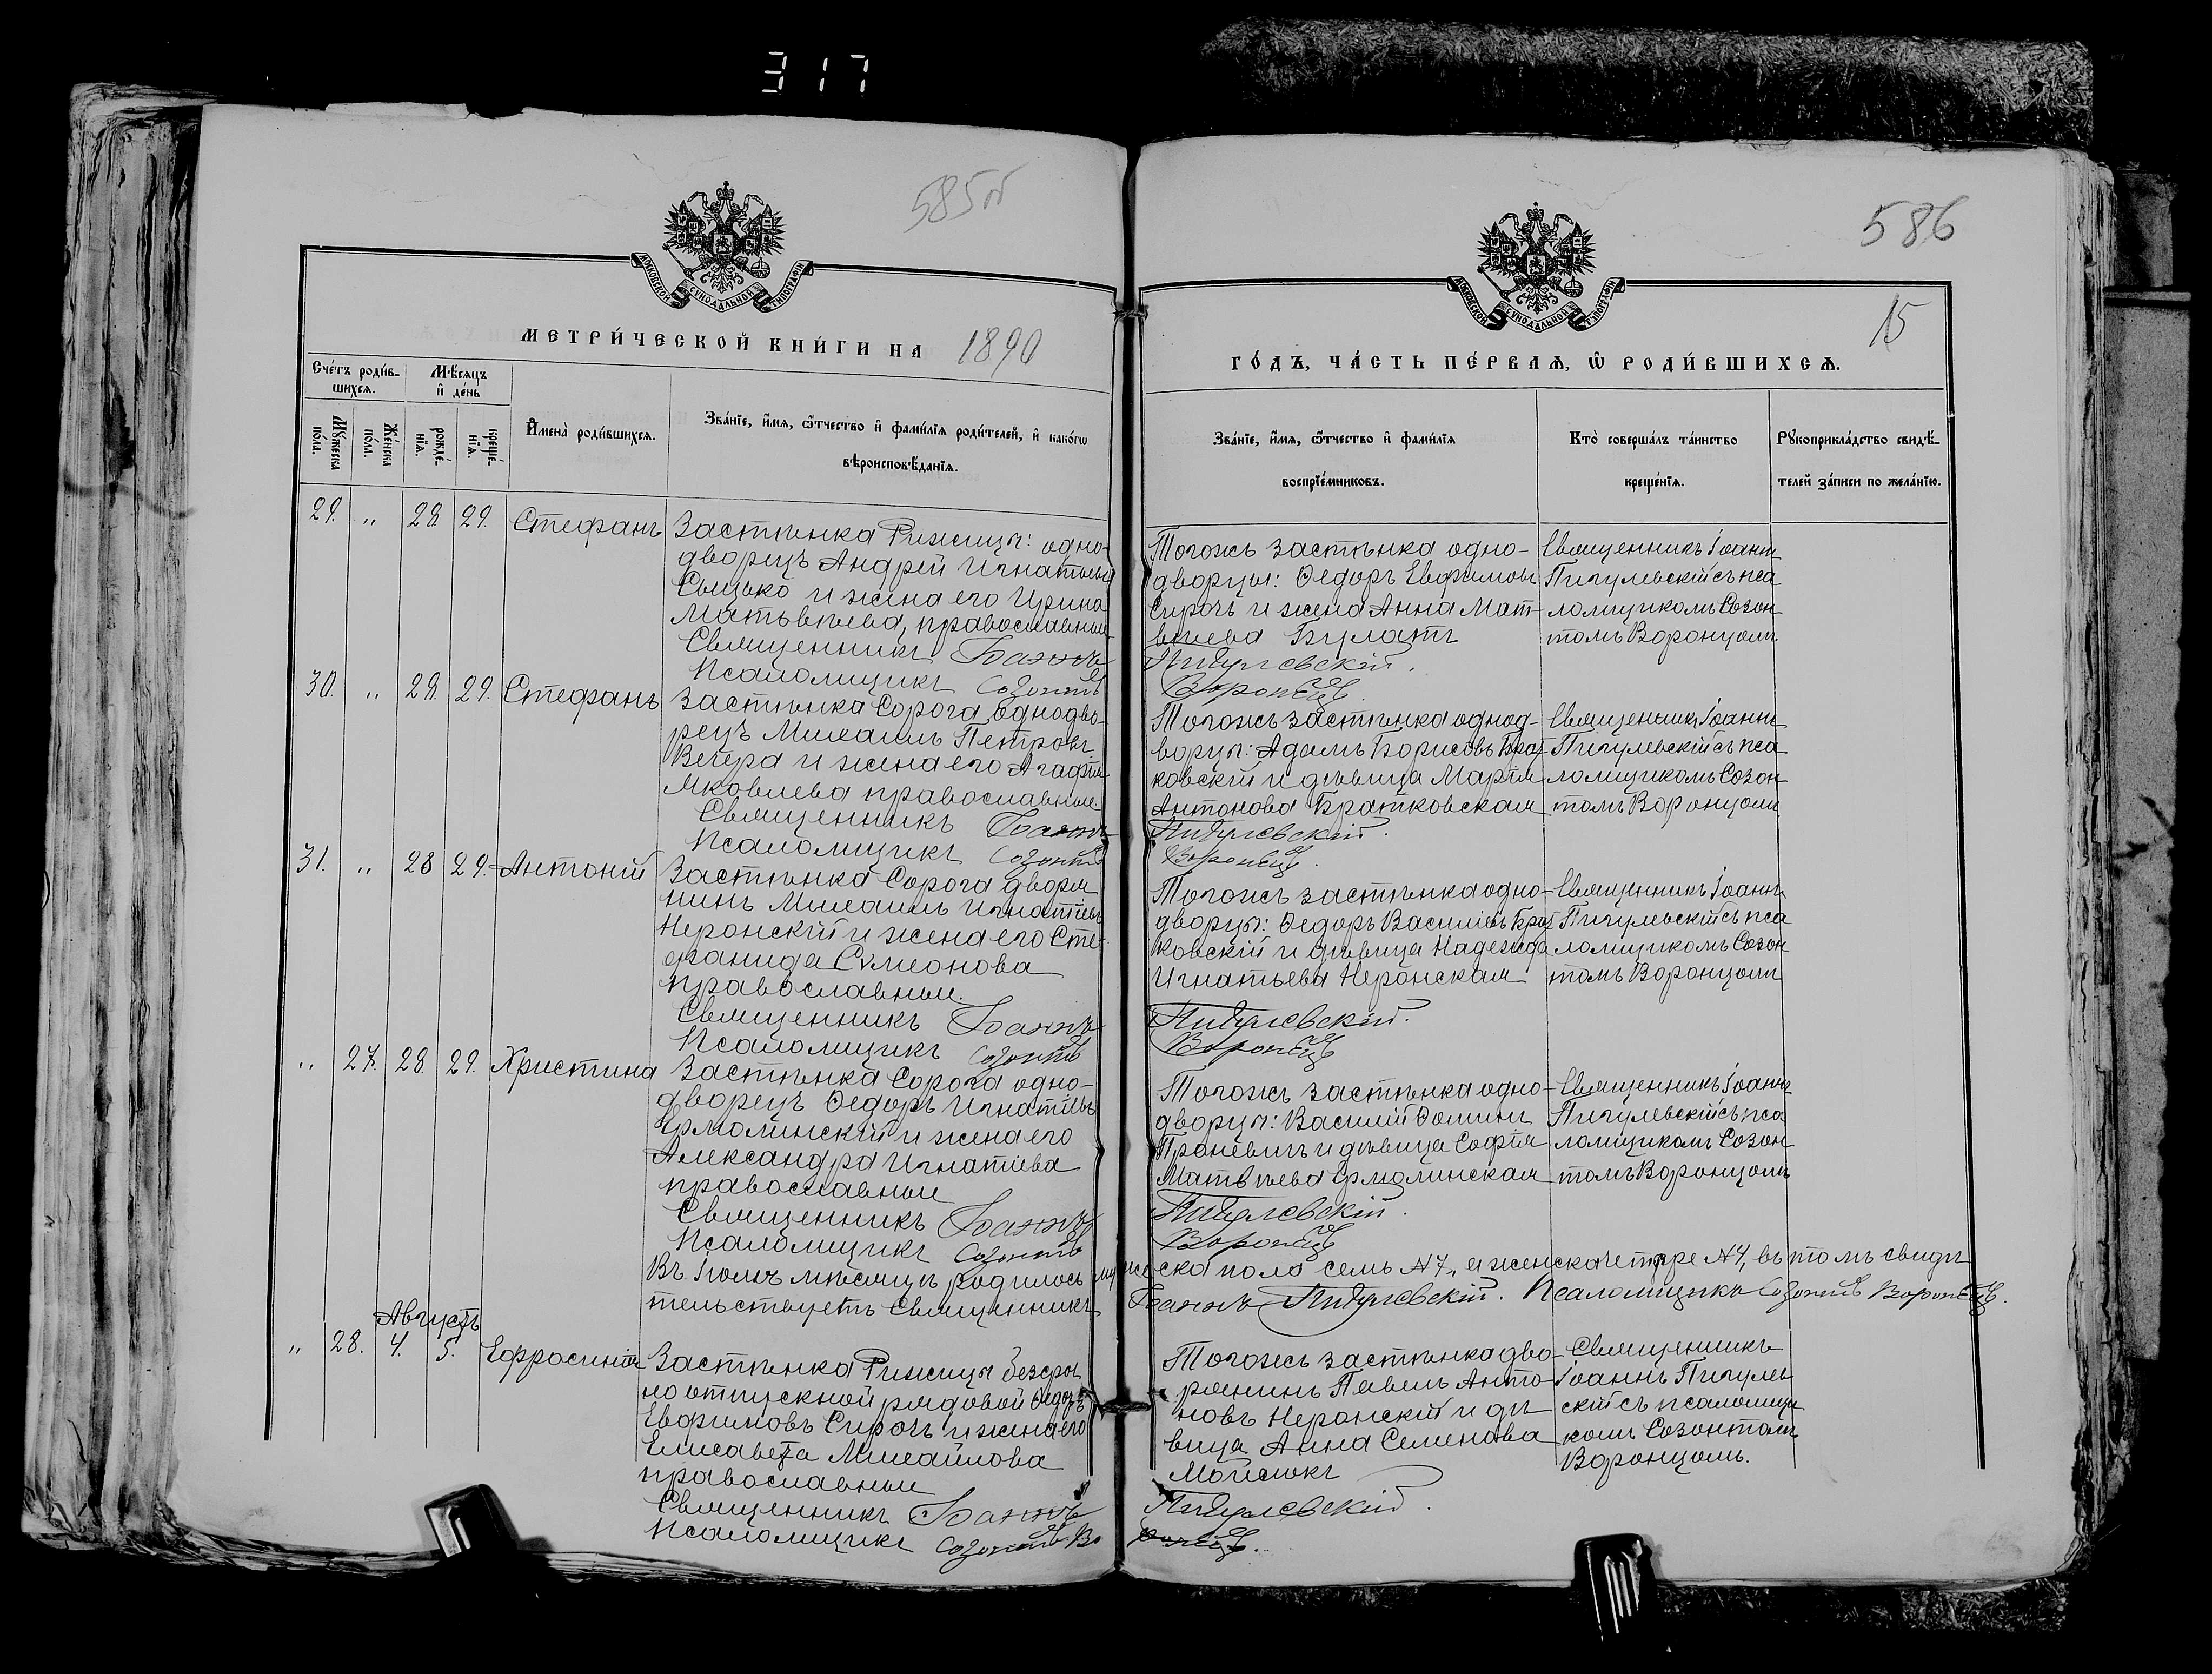 317
585об
586
15
МОСКОВСКОЙ СѴНОДАЛЬНОЙ ТИПОГРАФІИ
МОСКОВСКОЙ СѴНОДАЛЬНОЙ ТИПОГРАФІИ
МЕТРИ́ЧЕСКОЙ КНИ́ГИ НА 1890
ГО́ДЪ, ЧА́СТЬ ПЕ́РВАѦ, Ѡ РОДИ́ВШИХСѦ.
Сче́тъ роди́вшихся.
Мѣ́сяцъ и де́нь
Му́жеска по́ла.
Же́нска по́ла.
рожде́нїя.
креще́нїя.
Имена̀ роди́вшихся.
Зва́нїе, и́мя, ѻ́тчество и фами́лїя роди́телей, и како́гѡ
вѣроисповѣ́данїя.
Зва́нїе, и́мя, ѻ́тчество и фами́лїя
воспрїе́мниковъ.
Кто̀ соверша́лъ та́инство
креще́нїя.
Рукоприкла́дство свидѣ́-
телей за́писи по жела́нїю.
29. „ 28 29. Стефанъ
Застѣнка Рижицы: одно-
дворецъ Андрей Игнатьевъ
Сыцько и жена его Ирина
Матвѣева, православные
Священникъ Іоаннъ
Псаломщикъ Созонтъ
Тогожъ застѣнка одно-
дворцы: Ѳедоръ Евфимовъ
Сирочъ и жена Анна Мат-
вѣева Булатъ
Пигулевскій.
Воронецъ.
Священникъ Іоаннъ
Пигулевскій съ пса
ломщикомъ Созон
томъ Воронцомъ.
30. „ 29. 29. Стефанъ
Застѣнка Сорога однодво-
рецъ Михаилъ Петровъ
Вечера и жена его Агафія
Яковлева православные.
Священникъ Іоаннъ
Псаломщикъ Созонтъ
Тогожъ застѣнка однод-
ворцы: Адамъ Борисовъ Брат
ковскій и дѣвица Марія
Антонова Братковская
Пигулевскій.
Воронецъ.
Священникъ Іоаннъ
Пигулевскій съ пса
ломщикомъ Созон
томъ Воронцомъ
31. „ 28 29. Антоній
Застѣнка Сорога дворя
нинъ Михаилъ Игнатіевъ
Неронскій и жена его Сте-
фанида Сѵмеонова
православные.
Священникъ Іоаннъ
Псаломщикъ Созонтъ
Тогожъ застѣнка одно-
дворцы: Ѳедоръ Василіевъ Брат
ковскій и дѣвица Надежда
Игнатьева Неронская
Пигулевскій.
Воронецъ
Священникъ Іоаннъ
Пигулевскій съ пса
ломщикомъ Созон
томъ Воронцомъ
„ 27. 28 29. Христина
Застѣнка Сорога одно-
дворецъ Ѳедоръ Игнатіевъ
Ярмолинскій и жена его
Александра Игнатіева
православные
Священникъ Іоаннъ
Псаломщикъ Созонтъ
Тогожъ застѣнка одно-
дворцы: Василій Ѳоминъ
Проневичъ и дѣвица Софія
Матвѣева Ярмолинская
Пигулевскій.
Воронецъ
Священникъ Іоаннъ
Пигулевскій съ пса
ломщикомъ Созон
томъ Воронцомъ
Въ Іюлѣ мѣсяцѣ родилось мужеска пола семь №7, а женска четыре №4, въ томъ свидѣ
тельствуетъ Священникъ Іоаннъ Пигулевскій. Псаломщикъ Созонтъ Воронецъ.
Августъ
„ 28. 4. 5. Ефросинія
Застѣнка Рижицы безсроч
но отпускной рядовой Ѳедоръ
Евфимовъ Сирочъ и жена его
Елисавета Михайлова
православные
Священникъ Іоаннъ
Псаломщикъ Созонтъ Во
Тогожъ застѣнка дво-
рянинъ Павелъ Анто-
новъ Неронскій и дѣ
вица Анна Семенова
Мойсюкъ
Пигулевскій.
ронецъ.
Священникъ
Іоаннъ Пигулев
скій съ псаломщи
комъ Созонтомъ
Воронцомъ.